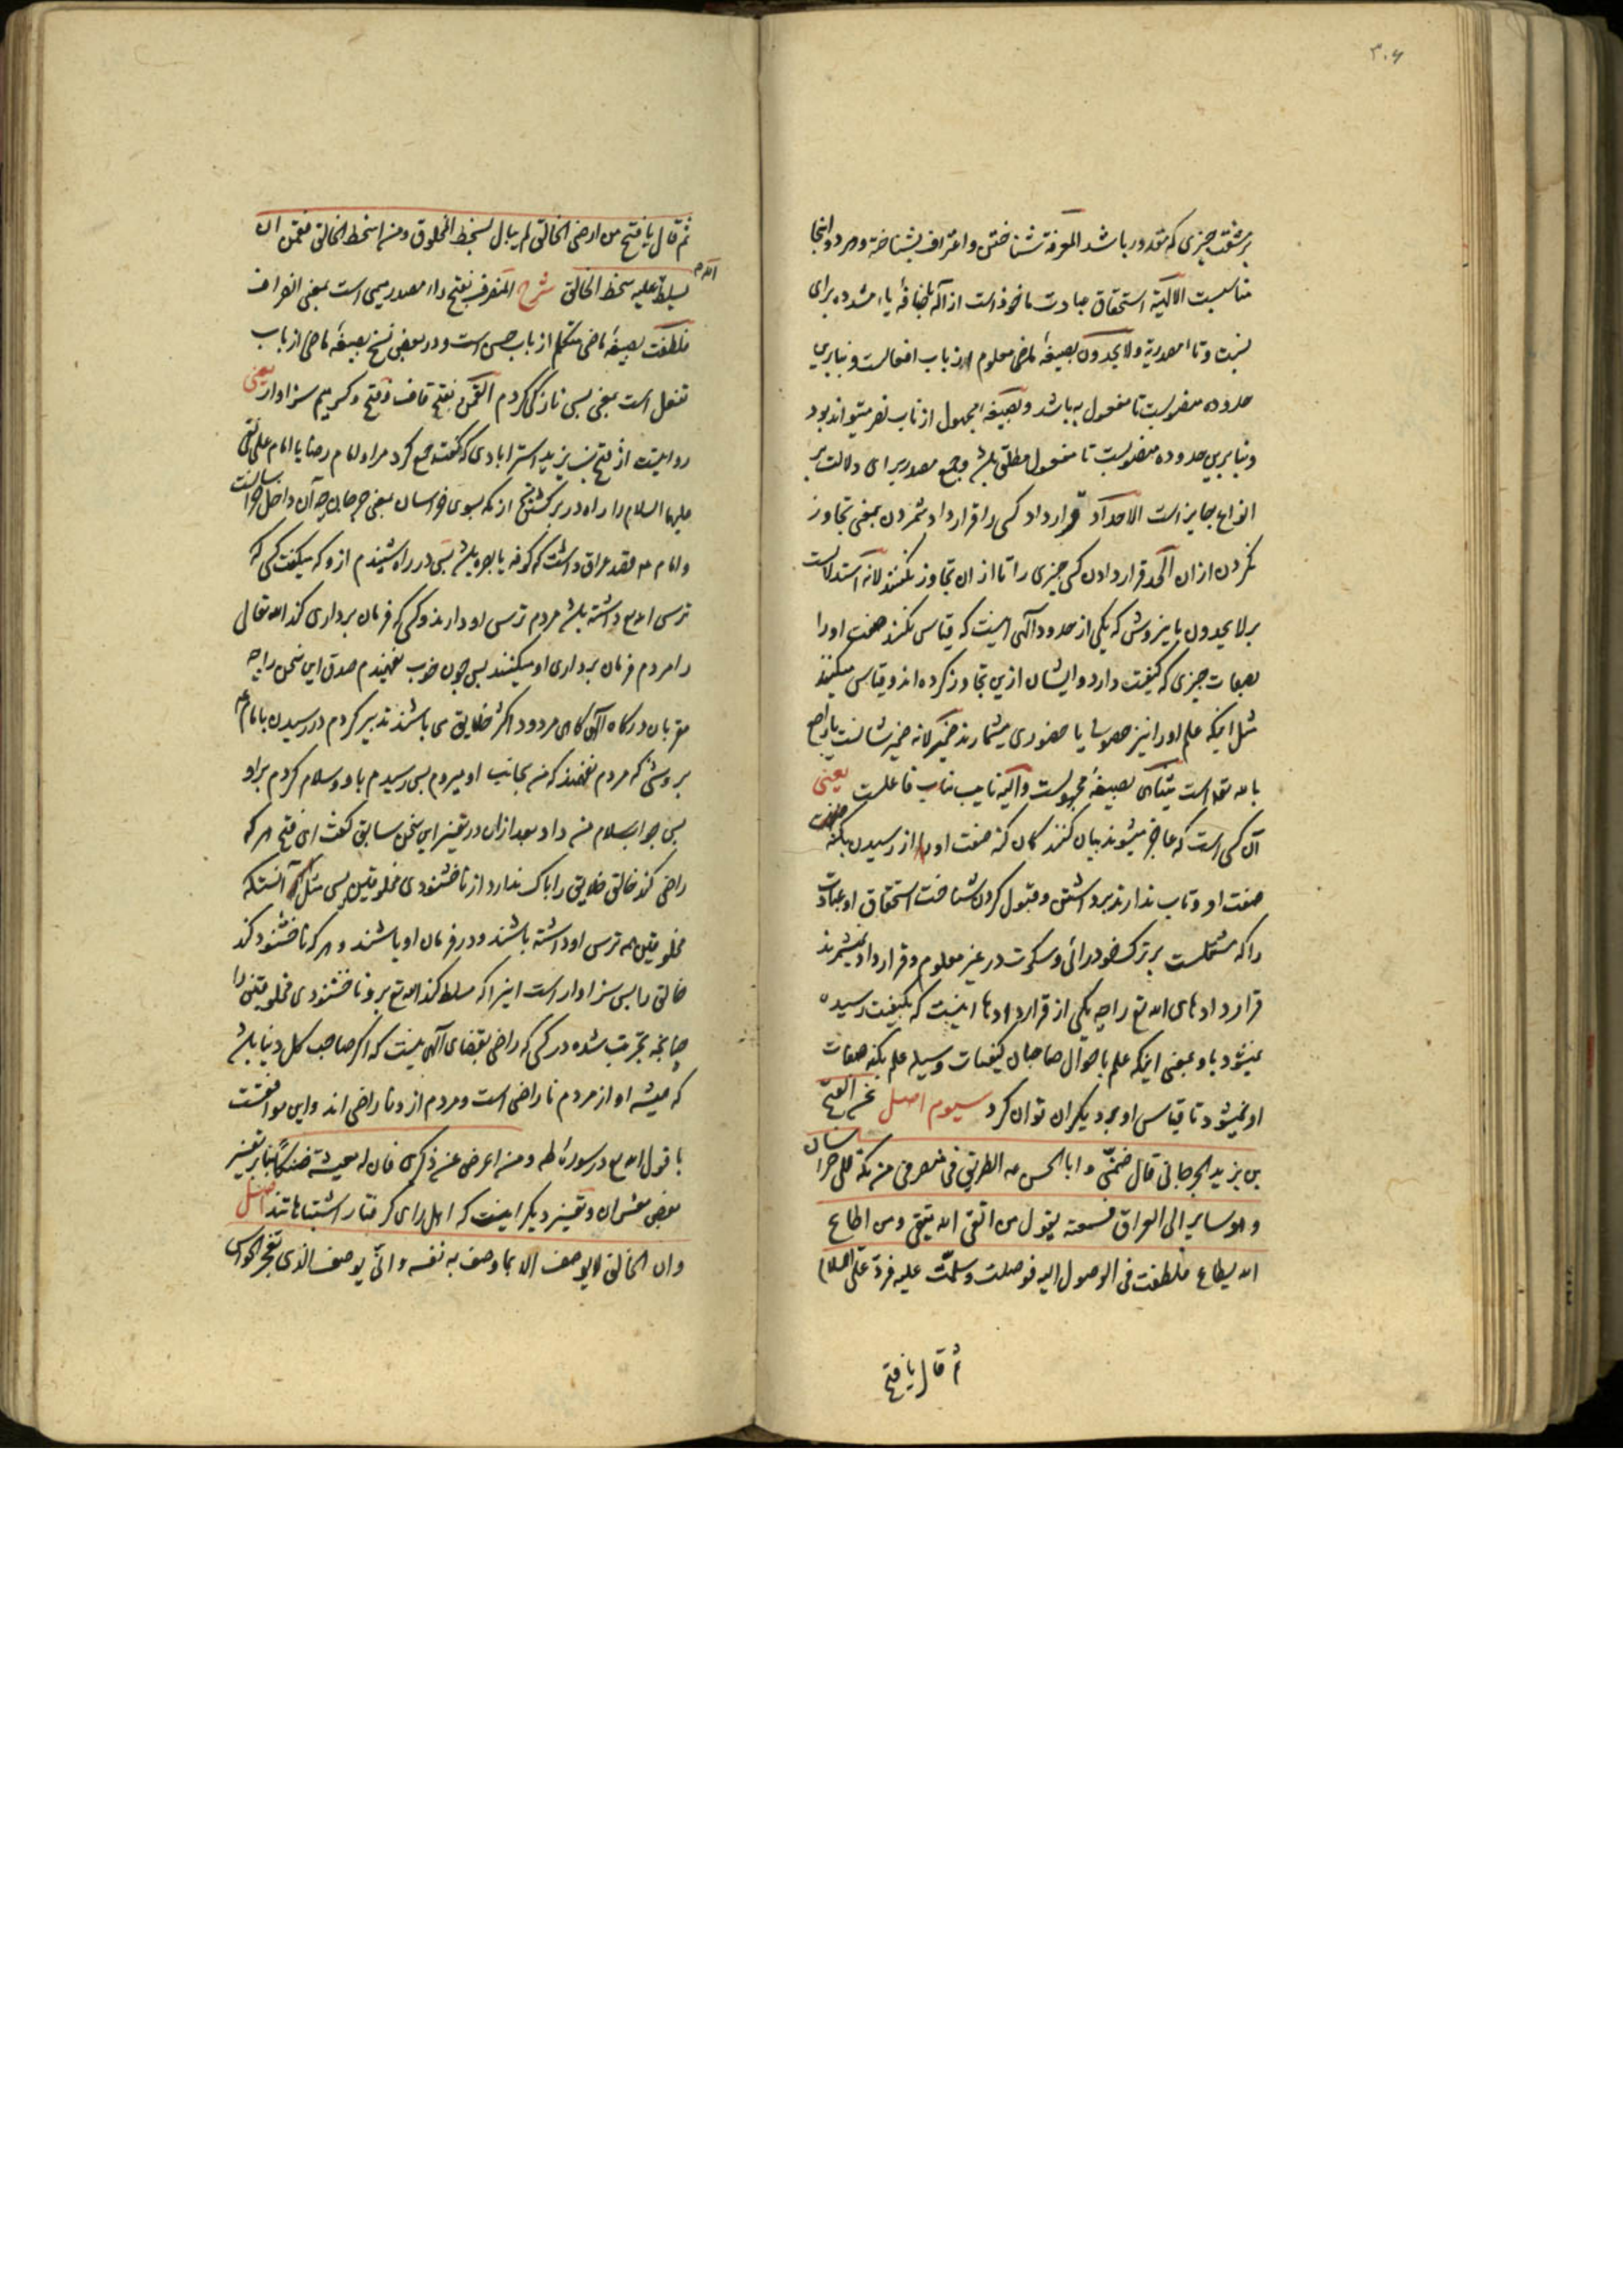 ۳۰۶
بر مشقت چیزی که مقدور باشد المعرفة شناختن و اعتراف بشناخته و هر دو اینجا
مناسبست الالهیّة استحقاق عبادت ماخوذ است از اله باضافهٔ یاء مشدده برای
نسبت و تاء مصدریة ولا یحدون بصیغهٔ معلوم از باب افعالست و بنابرین
حدوده منصوبست تا مفعول به باشد و بصیغهٔ مجهول از باب نصر میتواند بود
و بنابرین حدوده منصوبست تا مفعول مطلق باشد و جمع مصدر برای دلالت بر
انواع جایز است الاحداد قرارداد کسی را قرارداد شمردن بمعنی تجاوز
نکردن از آن الحد قرار دادن کسی چیزی را تا از ان تجاوز نکنند لانه استدلالست
بر لا یحدون باین روش که یکی از حدود الهی اینست که قیاس نکنند صفت او را
بصفات چیزی که کیفیت دارد و ایشان ازین تجاوز کرده اند و قیاس میکنند
مثل اینکه علم او را نیز حصولی یا حضوری میشمارند ضمیر لانه ضمیر شانست یا راجع
بالله تعالی است یتناهی بصیغهٔ مجهولست و الیه نایب مناب فاعلست یعنی
آن کسی است که عاجز میشوند بیان کنندکان کنه صفت او از رسیدن بکنه
صفت او و تاب ندارند برداشتن و قبول کردن شناخت استحقاق او عبادت
را که مشتملست بر ترک خودرائی و سکوت در غیر معلوم و قرارداد نمیشمرند
قراردادهای الله تع را چه یکی از قراردادها اینست که بکیفیت رسیده
نمیشود باو بمعنی اینکه علم باحوال صاحبان کیفیات وسیله علم بکنه صفات
او نمیشود تا قیاس او بدیکران توان کرد سیوم اصل عن الفتح
بن یزید الجرجانی قال ضمّنی و ابا الحسن ع الطریق فی منصرفی من مکة الی خراسان
و هو سایر الی العراق فسمعته یقول من اتقی الله یتقی و من اطاع
الله یطاع فلطفت فی الوصول الیه فوصلت وسلمت علیه فردّ علیّ السلام
ثم قال یا فتح
ثم قال یا فتح من ارضی الخالق لم یبال بسخط المخلوق و من اسخط الخالق فقمن ان
یسلط الله علیه سخط الخالق شرح المنصرف بفتح راء مصدر میمی است بمعنی انصراف
فلطفت بصیغهٔ ماضی متکلم از باب حسن است و در بعضی نسخ بصیغهٔ ماضی از باب
تفعل است بمعنی بسی نازکی کردم القمن بفتح قاف و فتح و کسر میم سزاوار یعنی
روایتست از فتح بن یزید استرابادی که کفت جمع کرد مرا و امام رضا یا امام علی نقی
علیهما السلام را راه در برکشتن از مکه بسوی خراسان بمعنی جرجان چه آن داخل خراسانست
و امام ع قصد عراق داشت که کوفه یا بصره باشد پس در راه شنیدم از و که میکفت کسی که
ترس الله تع داشته باشد مردم ترس او دارند و کسی که فرمان برداری کند الله تعالی
را مردم فرمان برداری او میکنند پس چون خوب نفهمیدم صدق این سخن را چه
مقربان درکاه الهی کاهی مردود اکثر خلایق می باشند تدبیر کردم در رسیدن بامام ع
بروشی که مردم نفهمند که من بجانب او میروم پس رسیدم باو و سلام کردم بر او
پس جواب سلام من داد بعد از ان در تفسیر این سخن سابق کفت ای فتح هر که
راضی کند خالق خلایق را باک ندارد از ناخشنودی مخلوقین پس مثل آنستکه
مخلوقین همه ترس او داشته باشند و در فرمان او باشند و هر که ناخشنود کند
خالق را پس سزاوار است اینرا که مسلط کند الله تع بر و ناخشنودی مخلوقین را
چنانچه تجربت شده در کسی که راضی بقضای الهی نیست که اکر صاحب کل دنیا باشد
که همیشه او از مردم ناراضی است و مردم از و ناراضی اند و این موافقست
با قول الله تع در سورهٔ طه و من اعرض عن ذکری فان له معیشة ضنکاً بنابر تفسیر
بعضی مفسران و تفسیر دیکر اینست که اهل رای کرفتار اشتباهاتند اصل
وان الخالق لا یوصف الا بما وصف به نفسه و انّی یوصف الذی تعجز الحواس